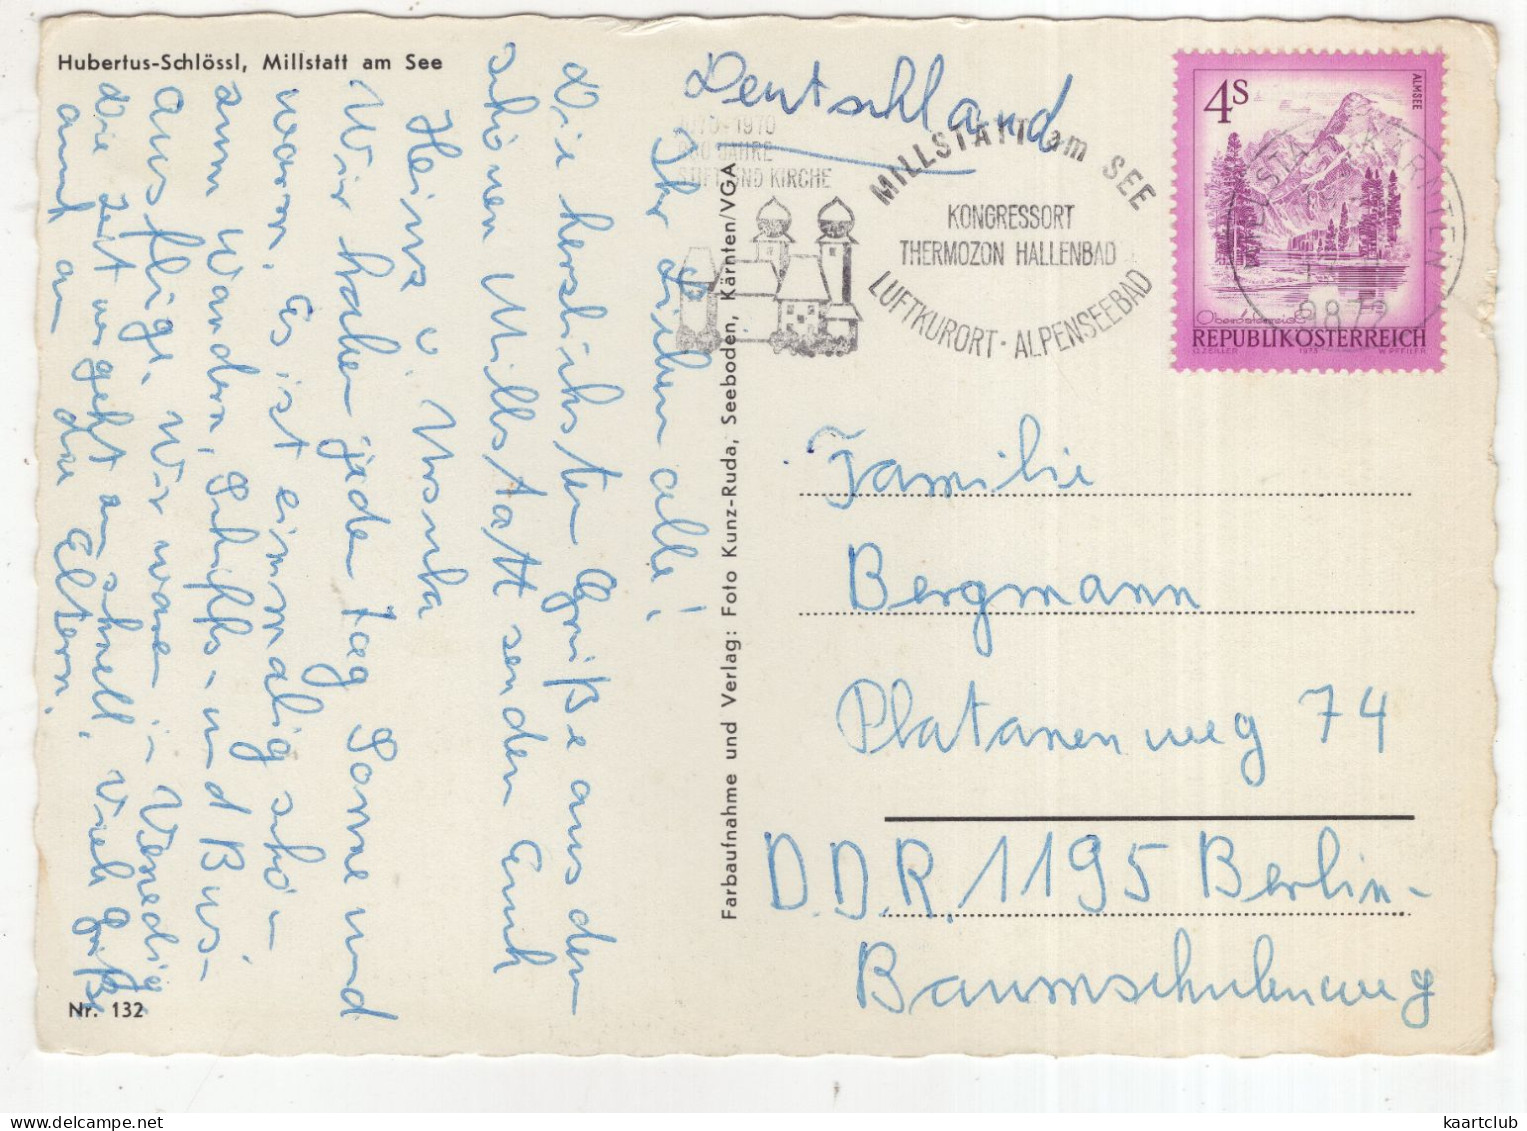 Hubertus-Schlössl, Millstatt am See
Deutschland
1070-1970
900 JAHRE
STIFT UND KIRCHE
MILLSTATT am SEE
KONGRESSORT
THERMOZON HALLENBAD
LUFTKURORT · ALPENSEEBAD
4S
ALMSEE
Oberösterreich
REPUBLIK ÖSTERREICH
O.ZEILER 1973 W.PFEILER
9872
Ihr Lieben alle!
Die herzlichsten Grüße aus dem
schönen Millstatt senden Euch
Heinz u. Ursula
Wir haben jeden Tag Sonne und
warm. Es ist einmalig schö-
zum Wandern, Schiffs- und Bus-
Ausflüge. Wir waren in Venedig.
Die Zeit vergeht so schnell. Viele Grüße
auch an die Eltern.
Farbaufnahme und Verlag: Foto Kunz-Ruda, Seeboden, Kärnten/VGA
Familie
Bergmann
Platanenweg 74
D.D.R. 1195 Berlin-
Baumschulenweg
Nr. 132
kaartclub